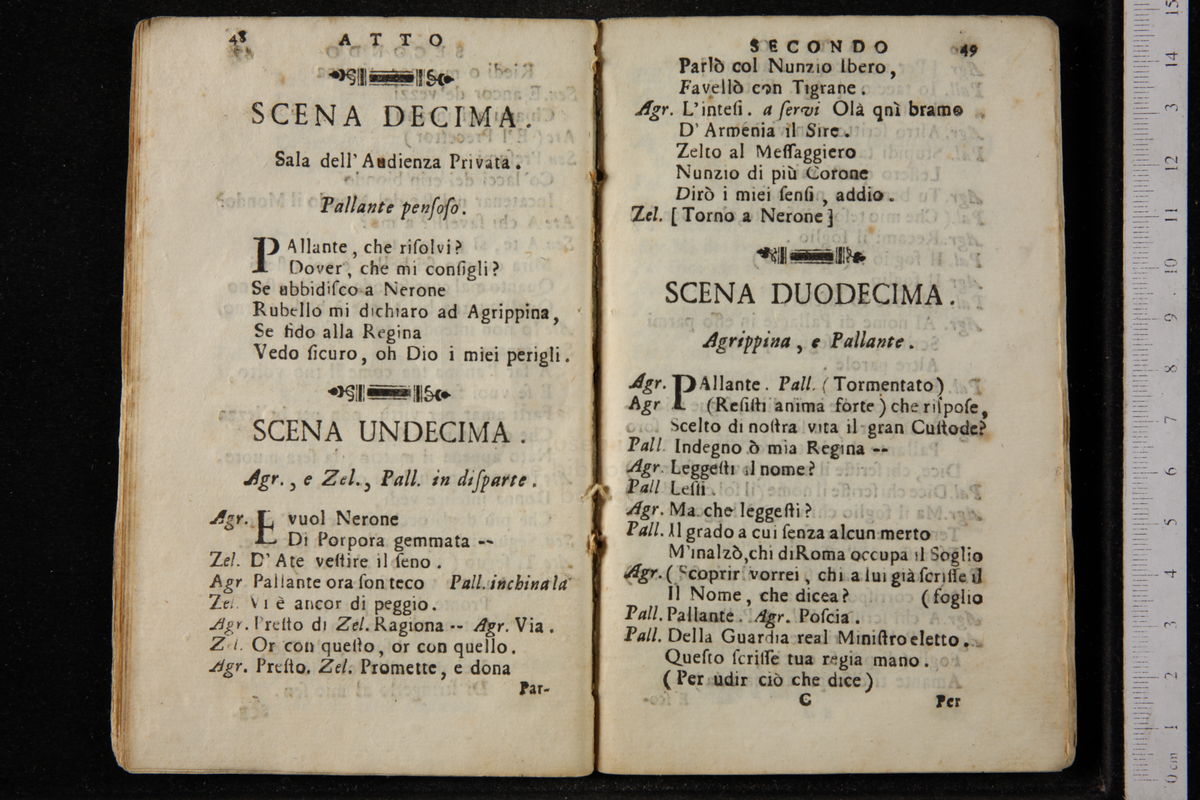 48 ATTO
SCENA DECIMA.
Sala dell' Audienza Privata.
Pallante penſoſo.
PAllante, che riſolvi?
Dover, che mi conſigli?
Se ubbidiſco a Nerone
Rubello mi dichiaro ad Agrippina,
Se fido alla Regina
Vedo ſicuro, oh Dio i miei perigli.
SCENA UNDECIMA.
Agr., e Zel., Pall. in diſparte.
Agr. E vuol Nerone
Di Porpora gemmata --
Zel. D' Ate veſtire il ſeno.
Agr Pallante ora ſon teco Pall. inchina la
Zel. Vi è ancor di peggio.
Agr. Preſto di Zel. Ragiona -- Agr. Via.
Zel. Or con queſto, or con quello.
Agr. Preſto. Zel. Promette, e dona
Par-
SECONDO 49
Parlò col Nunzio Ibero,
Favellò con Tigrane.
Agr. L'inteſi. a ſervi Olà qnì bramo
D' Armenia il Sire.
Zelto al Meſſaggiero
Nunzio di più Corone
Dirò i miei ſenſi, addio.
Zel. [Torno a Nerone]
SCENA DUODECIMA.
Agrippina, e Pallante.
Agr. PAllante. Pall. (Tormentato)
Agr (Reſiſti anima forte) che riſpoſe,
Scelto di noſtra vita il gran Cuſtode?
Pall. Indegno ò mia Regina --
Agr. Leggeſti il nome?
Pall Leſſi.
Agr. Ma che leggeſti?
Pall. Il grado a cui ſenza alcun merto
M'inalzò, chi di Roma occupa il Soglio
Agr. (Scoprir vorrei, chi a lui già ſcriſſe il
Il Nome, che dicea? (foglio
Pall. Pallante. Agr. Poſcia.
Pall. Della Guardia real Miniſtro eletto.
Queſto ſcriſſe tua regia mano.
(Per udir ciò che dice)
C Per